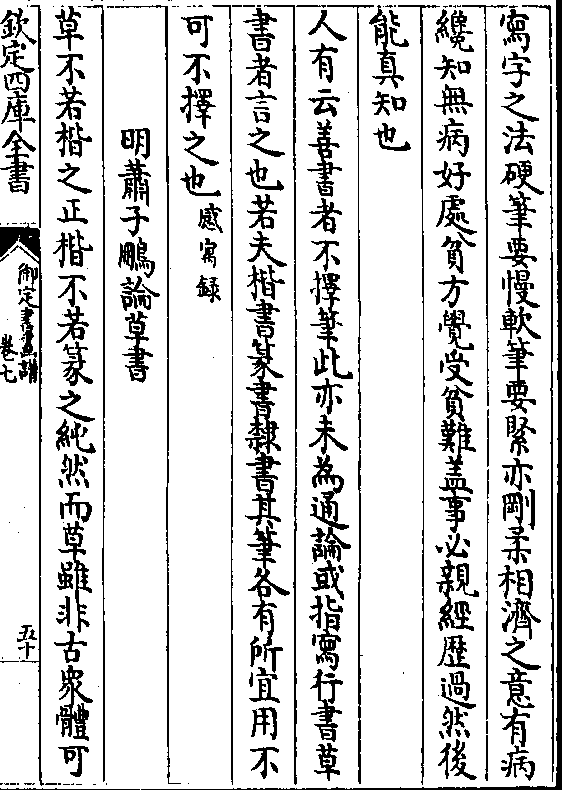 寫字之法硬筆要慢軟筆要緊亦剛柔相濟之意有病
纔知無病好處貧方覺受貧難盖事必親經歴過然後
能真知也
人有云善書者不擇筆此亦未為通論或指寫行書草
書者言之也若夫楷書篆書隸書其筆各有所宜用不
可不擇之也感寓録
明蕭子鵬論草書
草不若楷之正楷不若篆之純然而草雖非古衆體可
欽定四庫全書
御定書畫譜
卷七
五十